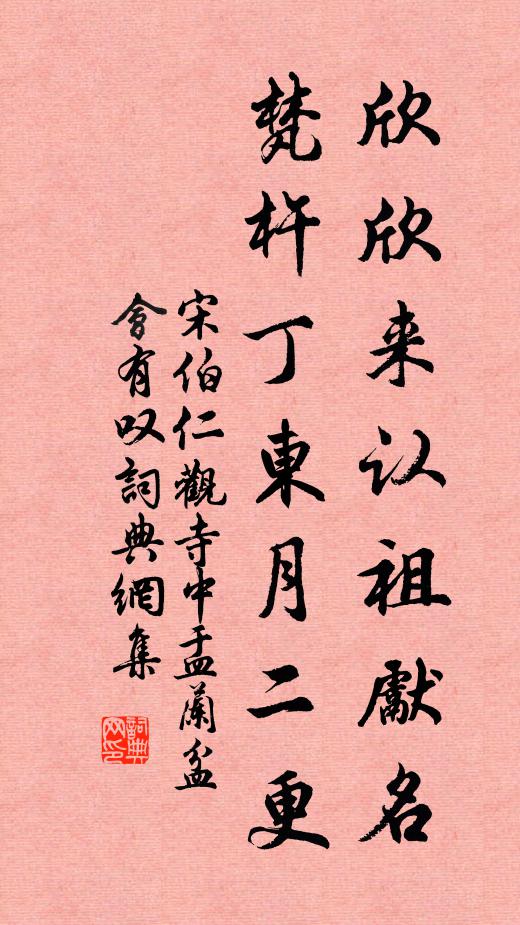 欣欣来认祖獻名
梵杵丁東月二更
宋伯仁觀寺中盂蘭盆
會有叹詞典網集
詞典
网印